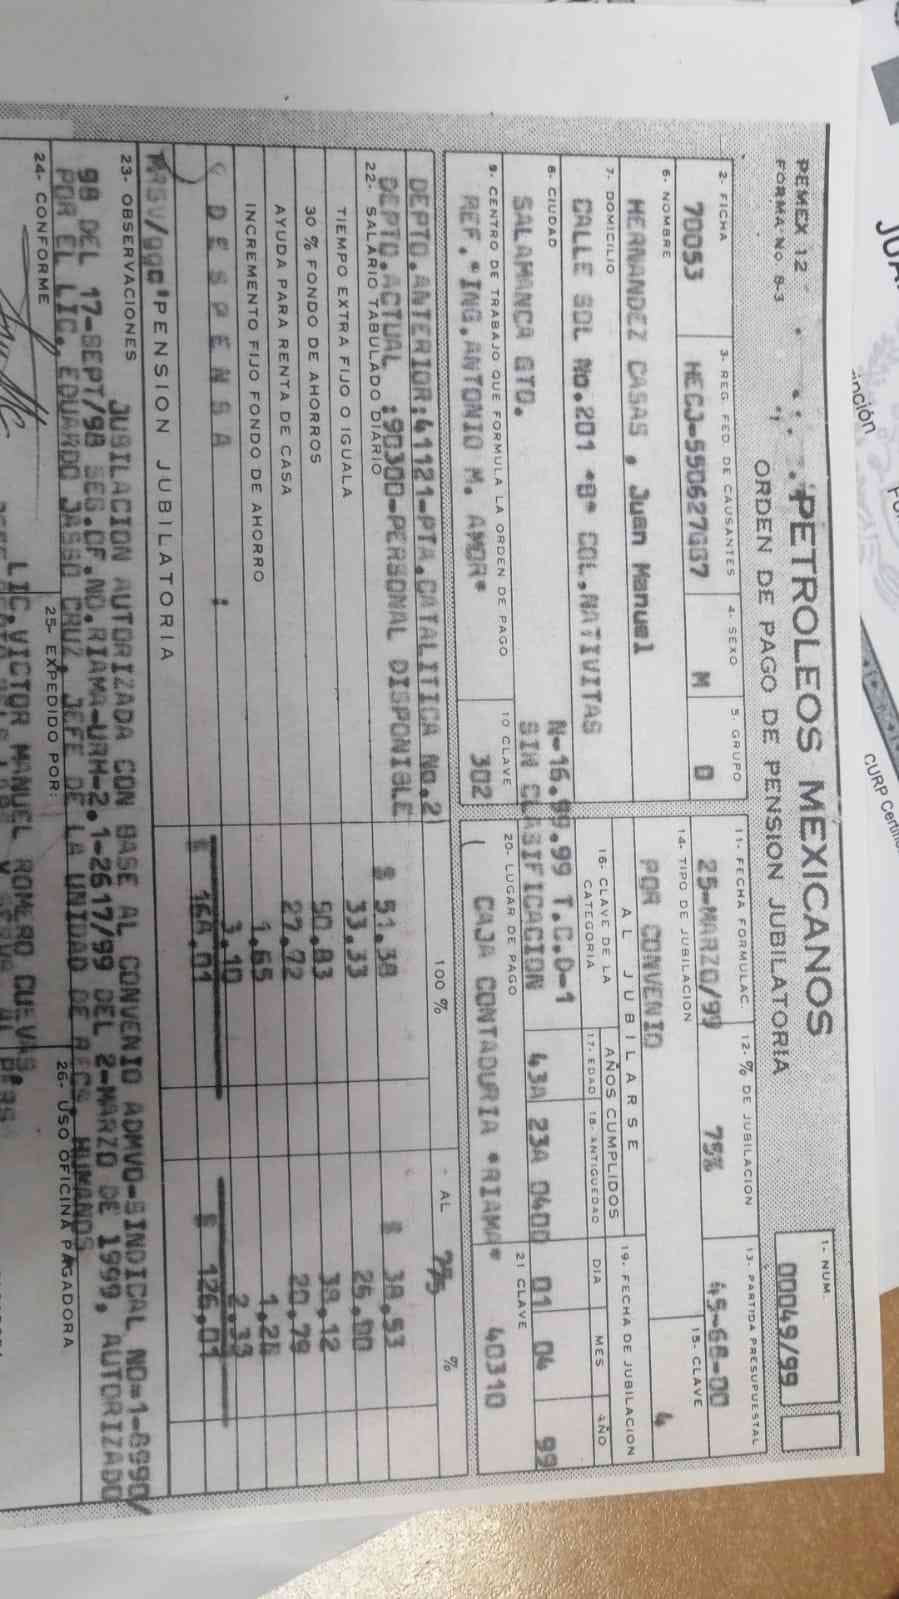 PEMEX 12
FORMA No. 8-3
PETROLEOS MEXICANOS
ORDEN DE PAGO DE PENSION JUBILATORIA
1- NUM.
00049/99
2- FICHA
70053
3- REG. FED. DE CAUSANTES
HECJ-550627GB7
4- SEXO
M
5. GRUPO
O
6- NOMBRE
HERNANDEZ CASAS , Juan Manuel
7- DOMICILIO
CALLE SOL No.201 "B" COL.NATIVITAS
8- CIUDAD
SALAMANCA GTO.
9- CENTRO DE TRABAJO QUE FORMULA LA ORDEN DE PAGO
REF."ING.ANTONIO M. AMOR"
10 CLAVE
302
11- FECHA FORMULAC.
25-MARZO/99
12- % DE JUBILACION
75%
13. PARTIDA PRESUPUESTAL
45-68-00
14- TIPO DE JUBILACION
POR CONVENIO
15- CLAVE
4
AL JUBILARSE
16- CLAVE DE LA CATEGORIA
N-16.99.99 T.C.D-1
SIN CLASIFICACION
AÑOS CUMPLIDOS
17- EDAD
43A
18- ANTIGUEDAD
23A 040D
19. FECHA DE JUBILACION
DIA MES AÑO
01 04 99
20- LUGAR DE PAGO
CAJA CONTADURIA "RIAMA"
21 CLAVE
40310
DEPTO.ANTERIOR:41121-PTA.CATALITICA No.2
DEPTO.ACTUAL :90300-PERSONAL DISPONIBLE
100 %
AL 75 %
22- SALARIO TABULADO DIARIO $ 51.38 $ 38.53
TIEMPO EXTRA FIJO O IGUALA 33.33 25.00
30 % FONDO DE AHORROS 50.83 38.12
AYUDA PARA RENTA DE CASA 27.72 20.79
INCREMENTO FIJO FONDO DE AHORRO 1.65
DESPENSA : 3.10 2.33
$ 168.01 $ 126.01
PENSION JUBILATORIA
23- OBSERVACIONES
JUBILACION AUTORIZADA CON BASE AL CONVENIO ADMVO-SINDICAL NO-1-8990/
98 DEL 17-SEPT/98 SEG.OF.NO.RIAMA-URH-2.1-2617/99 DEL 2-MARZO DE 1999, AUTORIZADO
POR EL LIC. EDUARDO JASSO CRUZ, JEFE DE LA UNIDAD DE RECS. HUMANOS
24- CONFORME
25- EXPEDIDO POR:
26- USO OFICINA PAGADORA
LIC.VICTOR MANUEL ROMERO CUEVAS
CURP